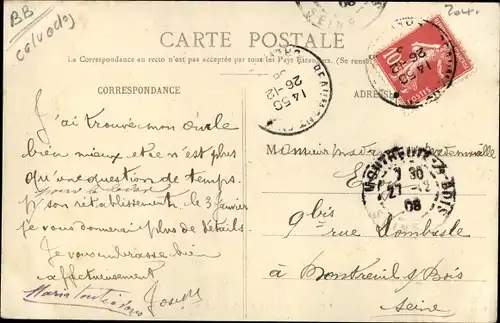 BB
Calvados
CARTE POSTALE
La Correspondance au recto n'est pas acceptée par tous les Pays Étrangers. (Se rense
CORRESPONDANCE
ADRESSE
14 50
26-12
14 50
26-12
10
POSTES
J'ai trouvé mon oncle
bien mieux et ce n'est plus
qu'une question de temps
pr son rétablissement. le 3 janvier
je vous donnerai plus de détails.
Je vous embrasse bien
affectueusement
Joseph
Monsieur Mademoiselle
MONTREUIL-S-BOIS
7 30
27-12
08
9 bis
rue Dombasle
à Montreuil s/ Bois
Seine